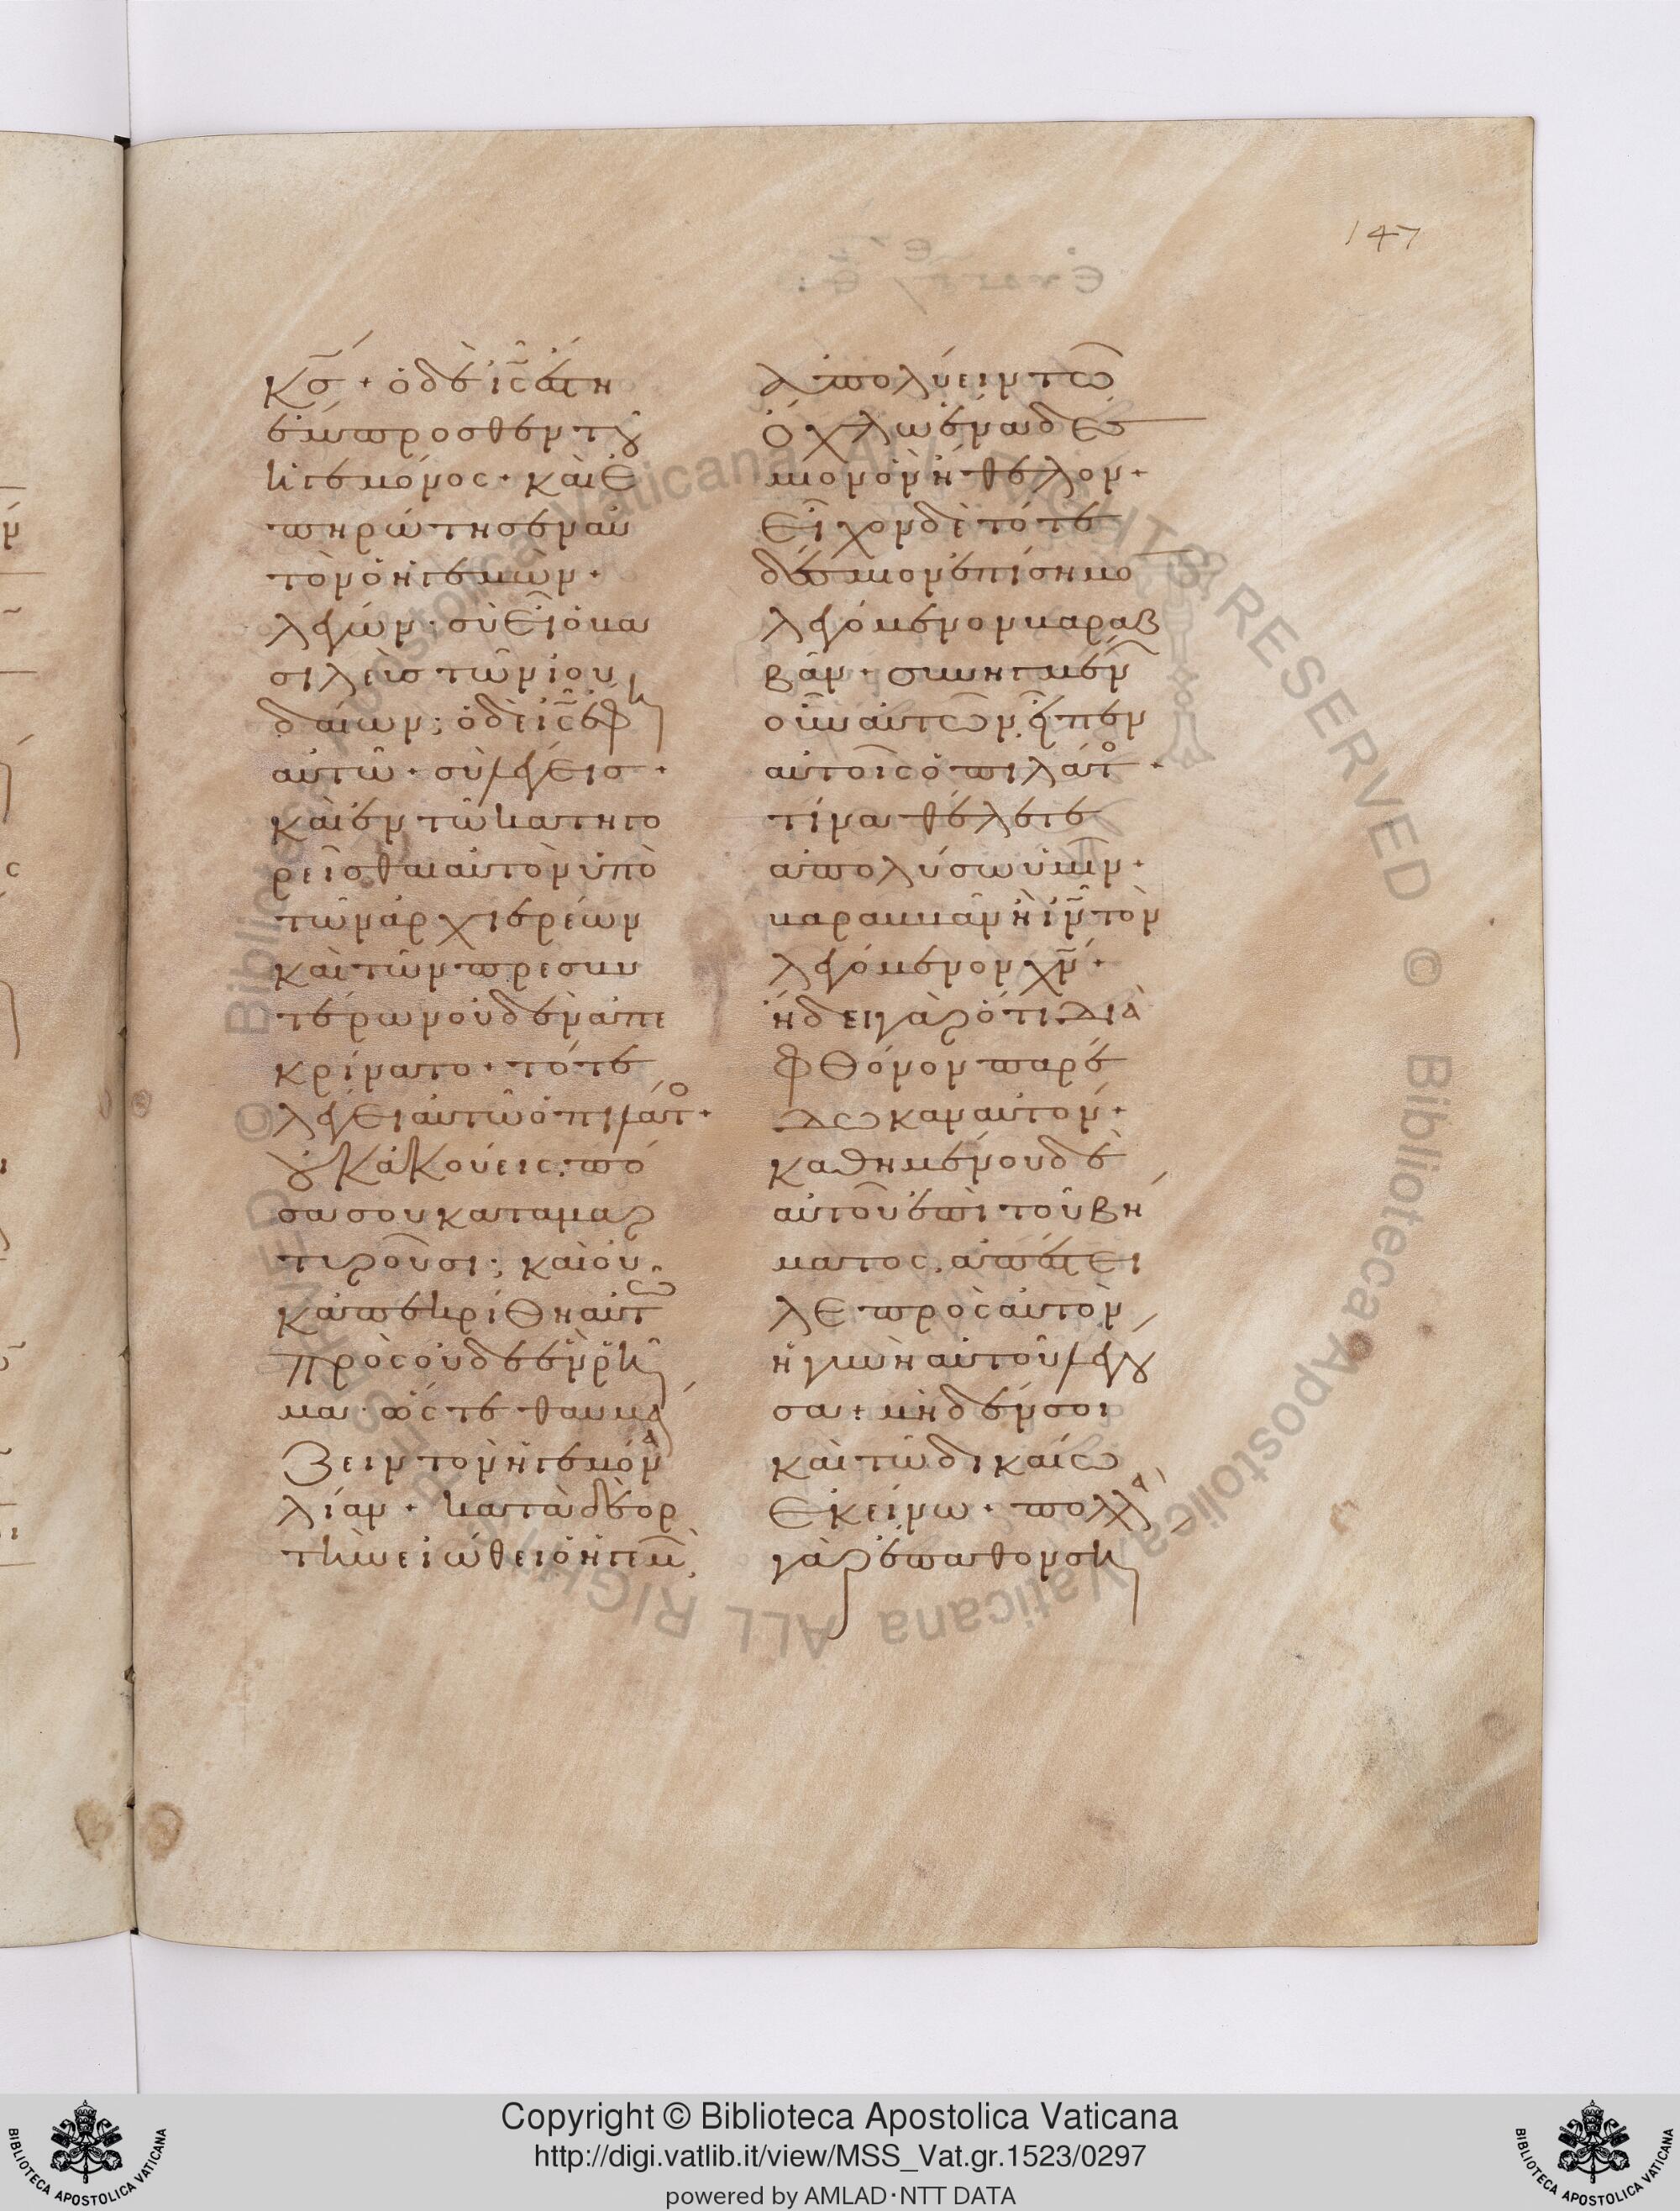 147
κ̅σ̅ · ὁ δὲ ι̅ς̅ ἔστη
ἔμπροσθεν τοῦ
ἡγεμόνος · καὶ ἐ
πηρώτησεν αὐ
τὸν ὁ ἡγεμὼν ·
λέγων · σὺ εἶ ὁ βα
σιλεὺς τῶν ἰου
δαίων; ὁ δὲ ι̅ς̅ ἔφη
αὐτῶ · σὺ λέγεις ·
καὶ ἐν τῶ κατηγο
ρεῖσθαι αὐτὸν ὑπὸ
τῶν ἀρχιερέων
καὶ τῶν πρεσβυ
τέρων οὐδὲν ἀπε
κρίνατο · τότε
λέγει αὐτῶ ὁ πιλάτο ·
οὐκ ἀκούεις · πό
σα σου καταμαρ
τυροῦσι; καὶ οὐ
κ ἀπεκρίθη αὐτῶ
πρὸς οὐδὲ ἓν ῥῆ
μα · ὥστε θαυμά
ζειν τὸν ἡγεμόνα
λίαν · κατὰ δὲ ἑορ
τὴν εἰώθει ὁ ἡγεμ
ἀπολύειν τῶ
ὄχλω ἕνα δέ
σμιον ὃν ἤθελον ·
εἶχον δὲ τότε
δέσμιον ἐπίσημο
λεγόμενον βαραβ
βᾶν · συνηγμέν
οὖν αὐτῶν, εἶπεν
αὐτοῖς ὁ πιλάτο ·
τίνα θέλετε
ἀπολύσω ὑμῖν ·
βαραββᾶν ἢ ι̅ν̅ τὸν
λεγόμενον χ̅ν̅ ·
ἤδει γὰρ ὅτι διὰ
φθόνον παρέ
δωκαν αὐτόν ·
καθημένου δὲ
αὐτοῦ ἐπὶ τοῦ βή
ματος, ἀπέστει
λε πρὸς αὐτὸν
ἡ γυνὴ αὐτοῦ λέγου
σα · μηδέν σοι
καὶ τῶ δικαίω
ἐκείνω · πολλὰ
γὰρ ἔπαθον ση
Copyright © Biblioteca Apostolica Vaticana
http://digi.vatlib.it/view/MSS_Vat.gr.1523/0297
powered by AMLAD·NTT DATA
BIBLIOTECA APOSTOLICA VATICANA
BIBLIOTECA APOSTOLICA VATICANA
© Biblioteca Apostolica Vaticana ALL RIGHTS RESERVED
© Biblioteca Apostolica Vaticana ALL RIGHTS RESERVED